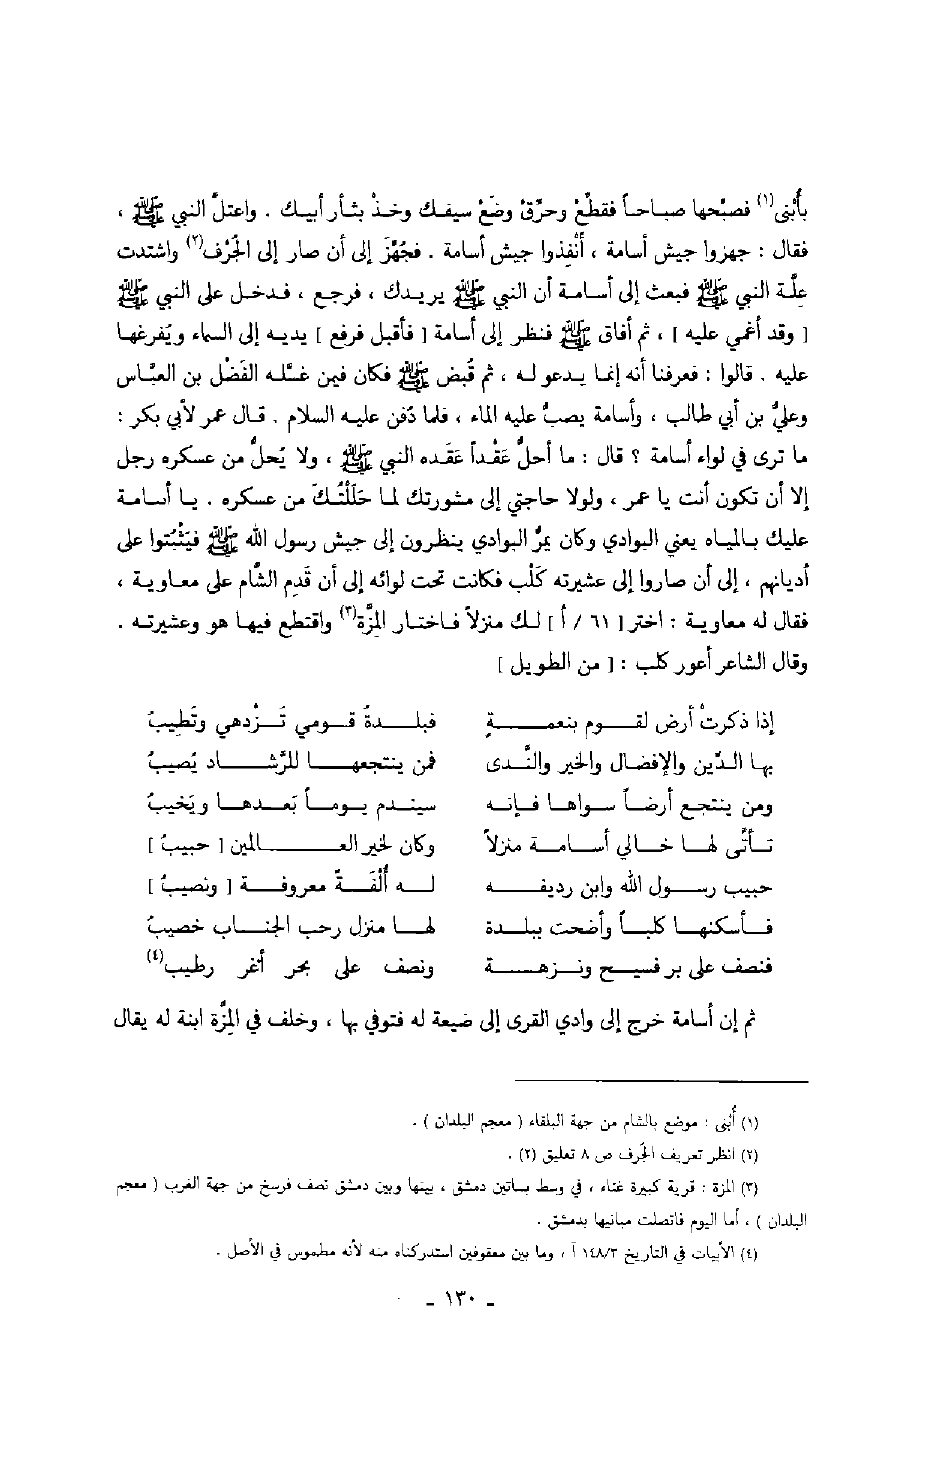 بأُبْنى(١) فصبِّحها صباحاً فقطِّعْ وحرِّقْ وضَعْ سيفك وخذْ بثأر أبيك . واعتلّ النبي ﷺ ،
فقال : جهزوا جيش أسامة ، أنْفِذوا جيش أسامة . فجُهِّزَ إلى أن صار إلى الجُرْف(٢) واشتدت
علِّة النبي ﷺ فبعث إلى أسامة أن النبي ﷺ يريدك ، فرجع ، فدخل على النبي ﷺ
[ وقد أغمي عليه ] ، ثم أفاق ﷺ فنظر إلى أسامة [ فأقبل فرفع ] يديه إلى السماء ويُفرغها
عليه . قالوا : فعرفنا أنه إنما يدعو له ، ثم قُبض ﷺ فكان فيمن غسَّله الفَضْل بن العبَّاس
وعليُّ بن أبي طالب ، وأسامة يصبُّ عليه الماء ، فلما دُفن عليه السلام . قال عمر لأبي بكر :
ما ترى في لواء أسامة ؟ قال : ما أحلُّ عقْداً عَقَده النبي ﷺ ، ولا يُحلُّ من عسكره رجل
إلا أن تكون أنت يا عمر ، ولولا حاجتي إلى مشورتك لما حَلَلْتُكَ من عسكره . يا أسامة
عليك بالمياه يعني البوادي وكان يمرُّ البوادي ينظرون إلى جيش رسول الله ﷺ فيَثْبُتوا على
أديانهم ، إلى أن صاروا إلى عشيرته كَلْب فكانت تحت لوائه إلى أن قَدِم الشَّام على معاوية ،
فقال له معاوية : اختر [ ٦١ / أ ] لك منزلاً فاختار المِزَّة(٣) واقتطع فيها هو وعشيرته .
وقال الشاعر أعور كلب : [ من الطويل ]
إذا ذكرتْ أرض لقوم بنعمةٍ فبلدةُ قومي تَزْدهي وتَطِيبُ
بها الدِّين والإفضال والخير والنَّدى فمن ينتجعها للرَّشاد يُصيبُ
ومن ينتجع أرضاً سواها فإنه سيندم يوماً بَعدها ويَخيبُ
تأتَّى لها خالي أسامة منزلاً وكان لخير العالمين [ حبيبُ ]
حبيب رسول الله وابن رديفه له أُلْفَةٌ معروفة [ ونصيبُ ]
فأسكنها كلباً وأضحت ببلدة لها منزل رحب الجناب خصيبُ
فنصف على بر فسيح ونزهة ونصف على بحر أغر رطيب(٤)
ثم إن أسامة خرج إلى وادي القرى إلى ضيعة له فتوفي بها ، وخلف في المِزَّة ابنة له يقال
(١) أُبْنى : موضع بالشام من جهة البلقاء ( معجم البلدان ) .
(٢) انظر تعريف الجُرف ص ٨ تعليق (٢) .
(٣) المزة : قرية كبيرة غناء ، في وسط بساتين دمشق ، بينها وبين دمشق نصف فرسخ من جهة الغرب ( معجم
البلدان ) ، أما اليوم فاتصلت مبانيها بدمشق .
(٤) الأبيات في التاريخ ١٤٨/٣ آ ، وما بين معقوفين استدركناه منه لأنه مطموس في الأصل .
ـ ١٣٠ ـ